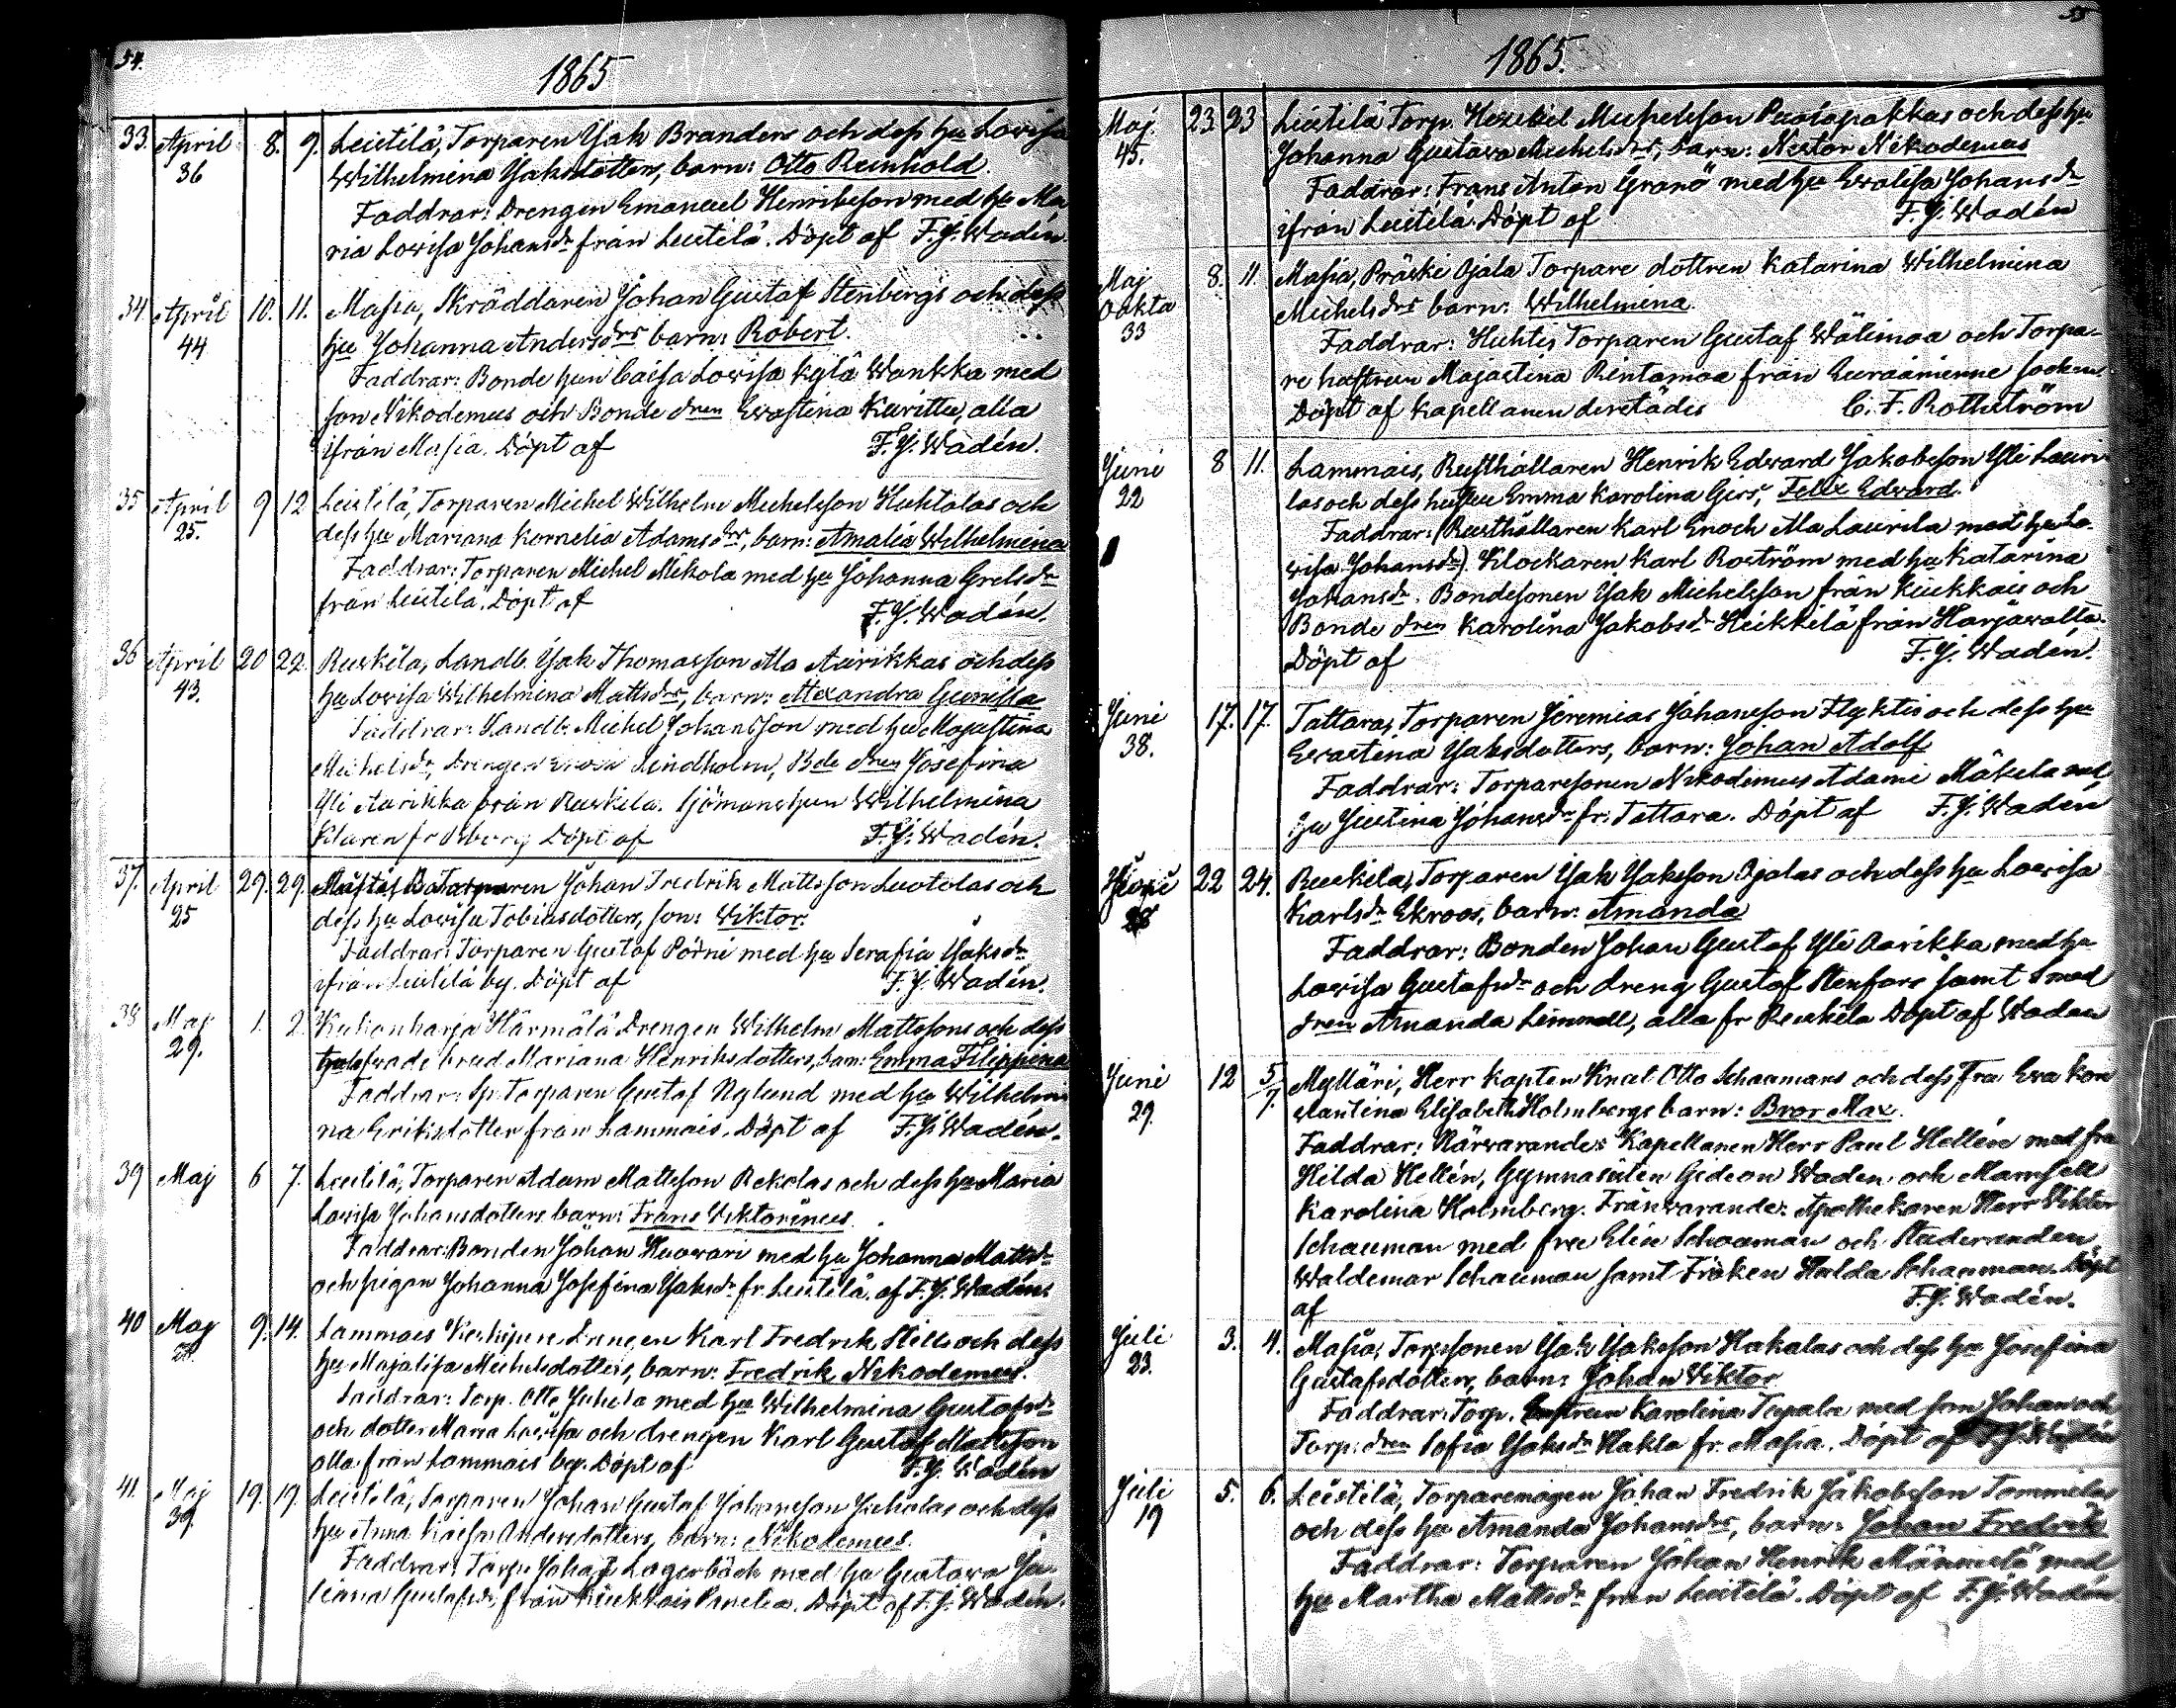 54.
1865
33. April 8. 9. Leistilä, Torparen Isak Branders och dess hu Lovisa
36 Wilhelmina Isaksdotters, barn: Otto Reinhold.
Faddrar: Drengen Emanuel Henriksson med hu Ma
ria Lovisa Johansdr från Leistilä. Döpt af F.J. Wadén.
34 April 10. 11. Masia, Skräddaren Johan Gustaf Stenbergs och dess
44 hu Johanna Andersdrs barn: Robert.
Faddrar: Bonde hun Caisa Lovisa kylä Wankka med
son Nikodemus och Bonde dren Evastina Kurittu, alla
ifrån Masia. Döpt af F.J. Wadén.
35 April 9 12 Leistilä, Torparen Michel Wilhelm Michelsson Huhtalas och
25. dess hu Mariana Kornelia Adamsdrs, barn: Amalia Wilhelmina
Faddrar: Torparen Michel Mikola med hu Johanna Grelsdr
från Leistilä. Döpt af F.J. Wadén.
36 April 20 22. Ruskila, Landb. Isak Thomasson Ala Aarikkas och dess
43. hu Lovisa Wilhelmina Mattsdrs, barn: Alexandra Gunilla
Faddrar: Landb. Michel Johansson med hu Majastina
Michelsdr, Drengen Lindholm, Bde dren Josefina
Yli Aarikka från Ruskila. Sjömanshun Wilhelmina
Klaren fr Döpt af F.J. Wadén.
37. April 29. 29. Torparen Johan Fredrik Mattsson Luotolas och
25 dess hu Lovisa Tobiasdotters, son: Wiktor.
Faddrar: Torparen Gustaf Pörni med hu Serafia Isaksdr
ifrån Leistilä by. Döpt af F.J. Wadén.
38 Maj 1. 2. Kukonharja Härmälä Drengen Wilhelm Mattssons och dess
29. brud Mariana Henriksdotters, barn: Emma Filippina
Faddrar: Sp. Torparen Gustaf Nylund med hu Wilhelmi
na Eriksdotter från Lammais. Döpt af F.J. Wadén.
39 Maj 6 7. Leistilä, Torparen Adam Mattsson Rekolas och dess hu Maria
Lovisa Johansdotters barn: Frans Viktorinus.
Faddrar: Bonden Johan Huovari med hu Johanna Mattsdr
och pigan Johanna Josefina Isaksdr fr. Leistilä. af F.J. Wadén.
40 Maj 9. 14. Lammais Drengen Karl Fredrik Stills och dess
hu Majalisa Michelsdotters, barn: Fredrik Nikodemus.
Faddrar: Torp. Otto Juhola med hu Wilhelmina Gustafsdr
och dotter Maria Lovisa och drengen Karl Gustaf Mattsson
alla från Lammais by. Döpt af F.J. Wadén
41. Maj 19. 19. Leistilä, Torparen Johan Gustaf Johansson Juholas och dess
39. hu Anna Kaisa Andersdotters, barn: Nikodemus.
Faddrar: Torp. Johan Lagerbäck med hu Gustava Ju
liana Gustafsdr från Kiukkais Panelia. Döpt af F.J. Wadén.
55
1865.
Maj. 23 23 Leistilä Torp. Hezekiel Michelsson Puotapakkas och dess hu
45. Johanna Gustava Michelsdrs, barn: Nestor Nikodemus
Faddrar: Frans Anton Granö med hu Evalisa Johansdr
ifrån Leistilä. Döpt af F.J. Wadén
Maj 8. 11 Masia, Präski Ojala Torpare dottren Katarina Wilhelmina
Oäkta Michelsdrs barn: Wilhelmina.
33 Faddrar: Huhtis Torparen Gustaf Wälimaa och Torpa-
re hustrun Majastina Rintamaa från Euraåminne socken.
Döpt af Kapellanen derstädes C. F. Rothström
Juni 8 11. Lammais, Rusthållaren Henrik Edvard Jakobsson Yli Lauri
22 las och dess hustru Emma Karolina Girs, Felix Edvard.
Faddrar: (Rusthållaren Karl Enoch Ala Laurila med hu Lo-
visa Johansdr) Klockaren Karl Roström med hu Katarina
Johansdr. Bondesonen Isak Michelsson från Kiukkais och
Bonde dren Karolina Jakobsdr Heikkilä från Harjavalta.
Döpt af F.J. Wadén.
Juni 17. 17. Tattara, Torparen Jeremias Johansson Flyktis och dess hu
38. Evastina Isaksdotters, barn: Johan Adolf
Faddrar: Torparesonen Nikodemus Adami Mäkelä med
hu Justina Johansdr fr. Tattara. Döpt af F.J. Wadén
Juni 22 24. Ruskila, Torparen Isak Isaksson Ojalas och dess hu Lovisa
28 Karlsdr Ekroos, barn: Amanda
Faddrar: Bonden Johan Gustaf Yli Aarikka med hu
Lovisa Gustafsdr och dreng Gustaf Stenfors samt Smed
dren Amanda Limnell, alla fr Ruskila Döpt af Wadén
Juni 12 5/7. Mylläri, Herr Kapten Knut Otto Schaumans och dess Fru Eva Kon
29. stantina Elisabeth Holmbergs barn: Bror Max.
Faddrar: Närvarande: Kapellanen Herr Paul Hellén med fru
Hilda Hellén, Gymnasisten Gideon Wadén och Mamsell
Karolina Holmberg. Frånvarande: Apothekaren Herr Viktor
Schauman med fru Elise Schauman och Studeranden
Waldemar Schauman samt Fröken Hulda Schauman. Döpt
af F.J. Wadén.
Juli 3. 4. Masia, Torpsonen Isak Isaksson Hakalas och dess hu Josefina
23. Gustafsdotters, barn: Johan Viktor
Faddrar: Torp. Karolina med son Johan och
Torp. dren Sofia Isaksdr Hakla fr. Masia. Döpt af F.J. Wadén
Juli 5. 6. Leistilä, Torparemågen Johan Fredrik Jakobsson Tommila
19 och dess hu Amanda Johansdrs, barn: Johan Fredrik
Faddrar: Torparen Johan Henrik Männistö med
hu Martha Mattsdr från Leistilä. Döpt af F.J. Wadén